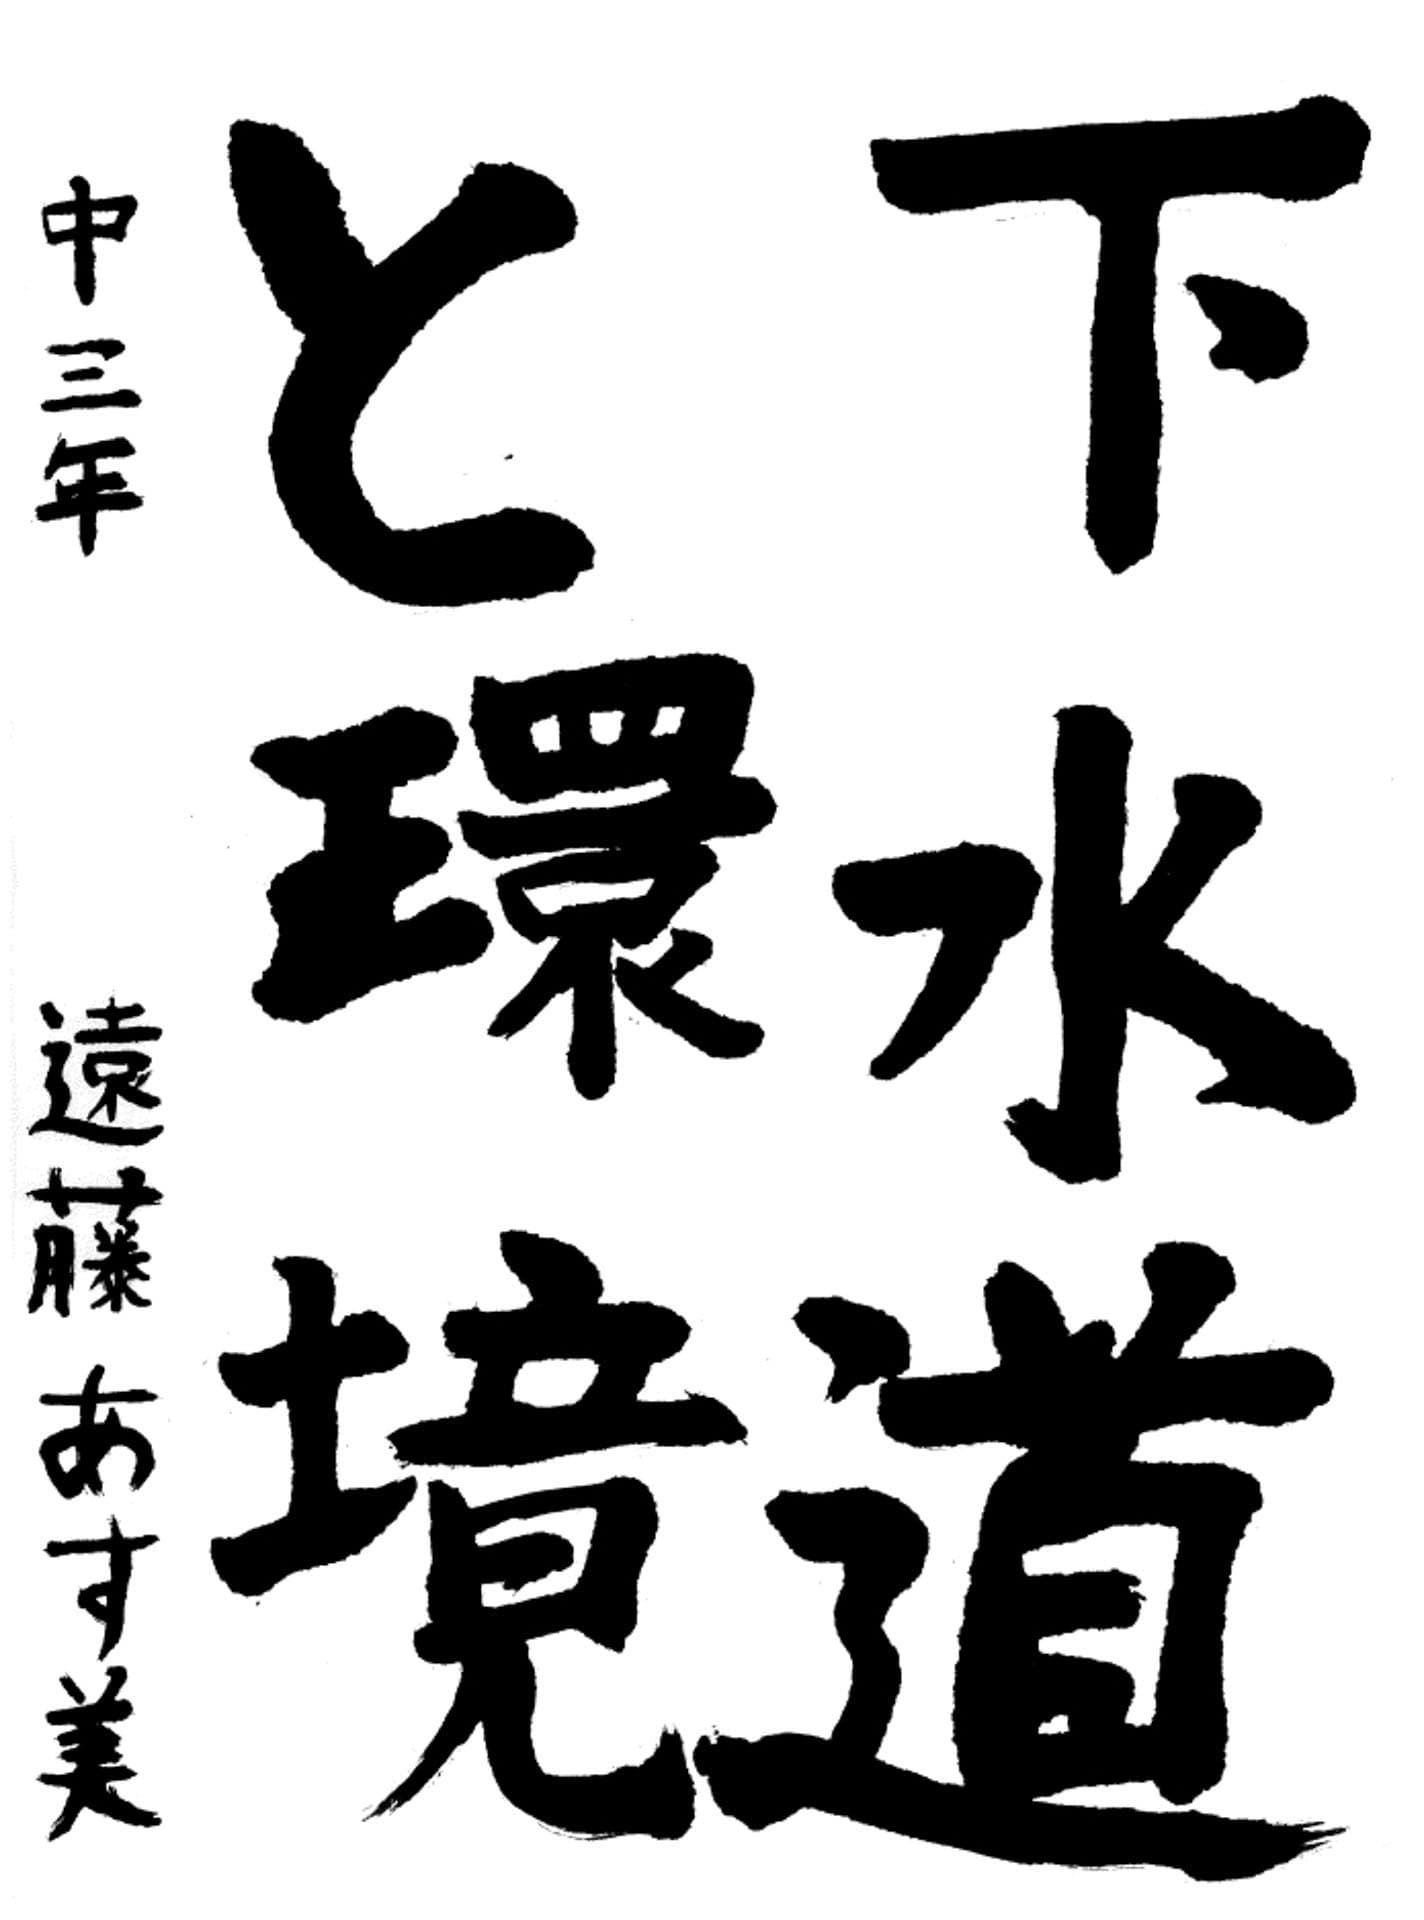 下水道
と環境
中三年 遠藤あす美